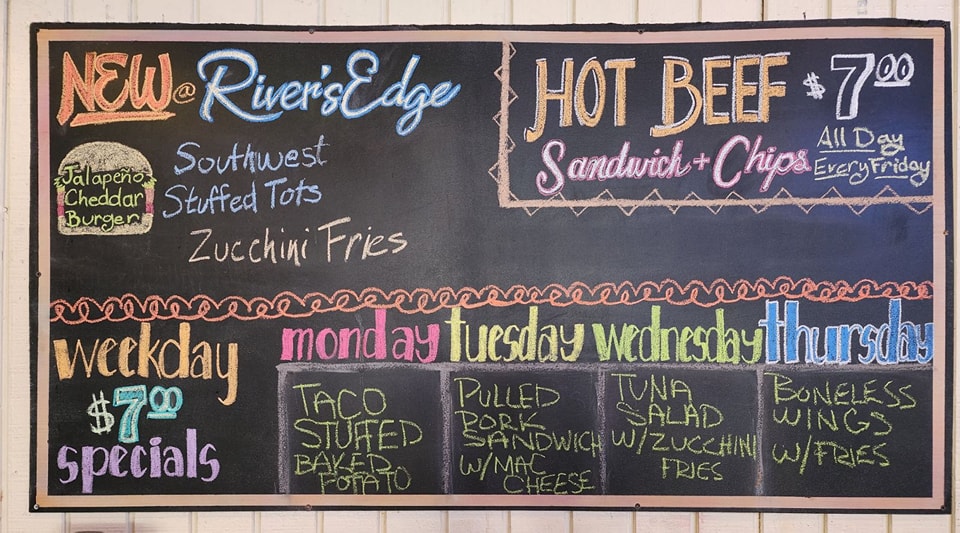 NEW @ River's Edge
Jalapeño
Cheddar
Burger
Southwest
Stuffed Tots
Zucchini Fries
HOT BEEF $7.00
Sandwich + Chips
All Day
Every Friday
weekday
$7.00
specials
monday
TACO
STUFFED
BAKED
POTATO
tuesday
PULLED
PORK
SANDWICH
W/MAC
CHEESE
wednesday
TUNA
SALAD
W/ZUCCHINI
FRIES
thursday
BONELESS
WINGS
W/FRIES